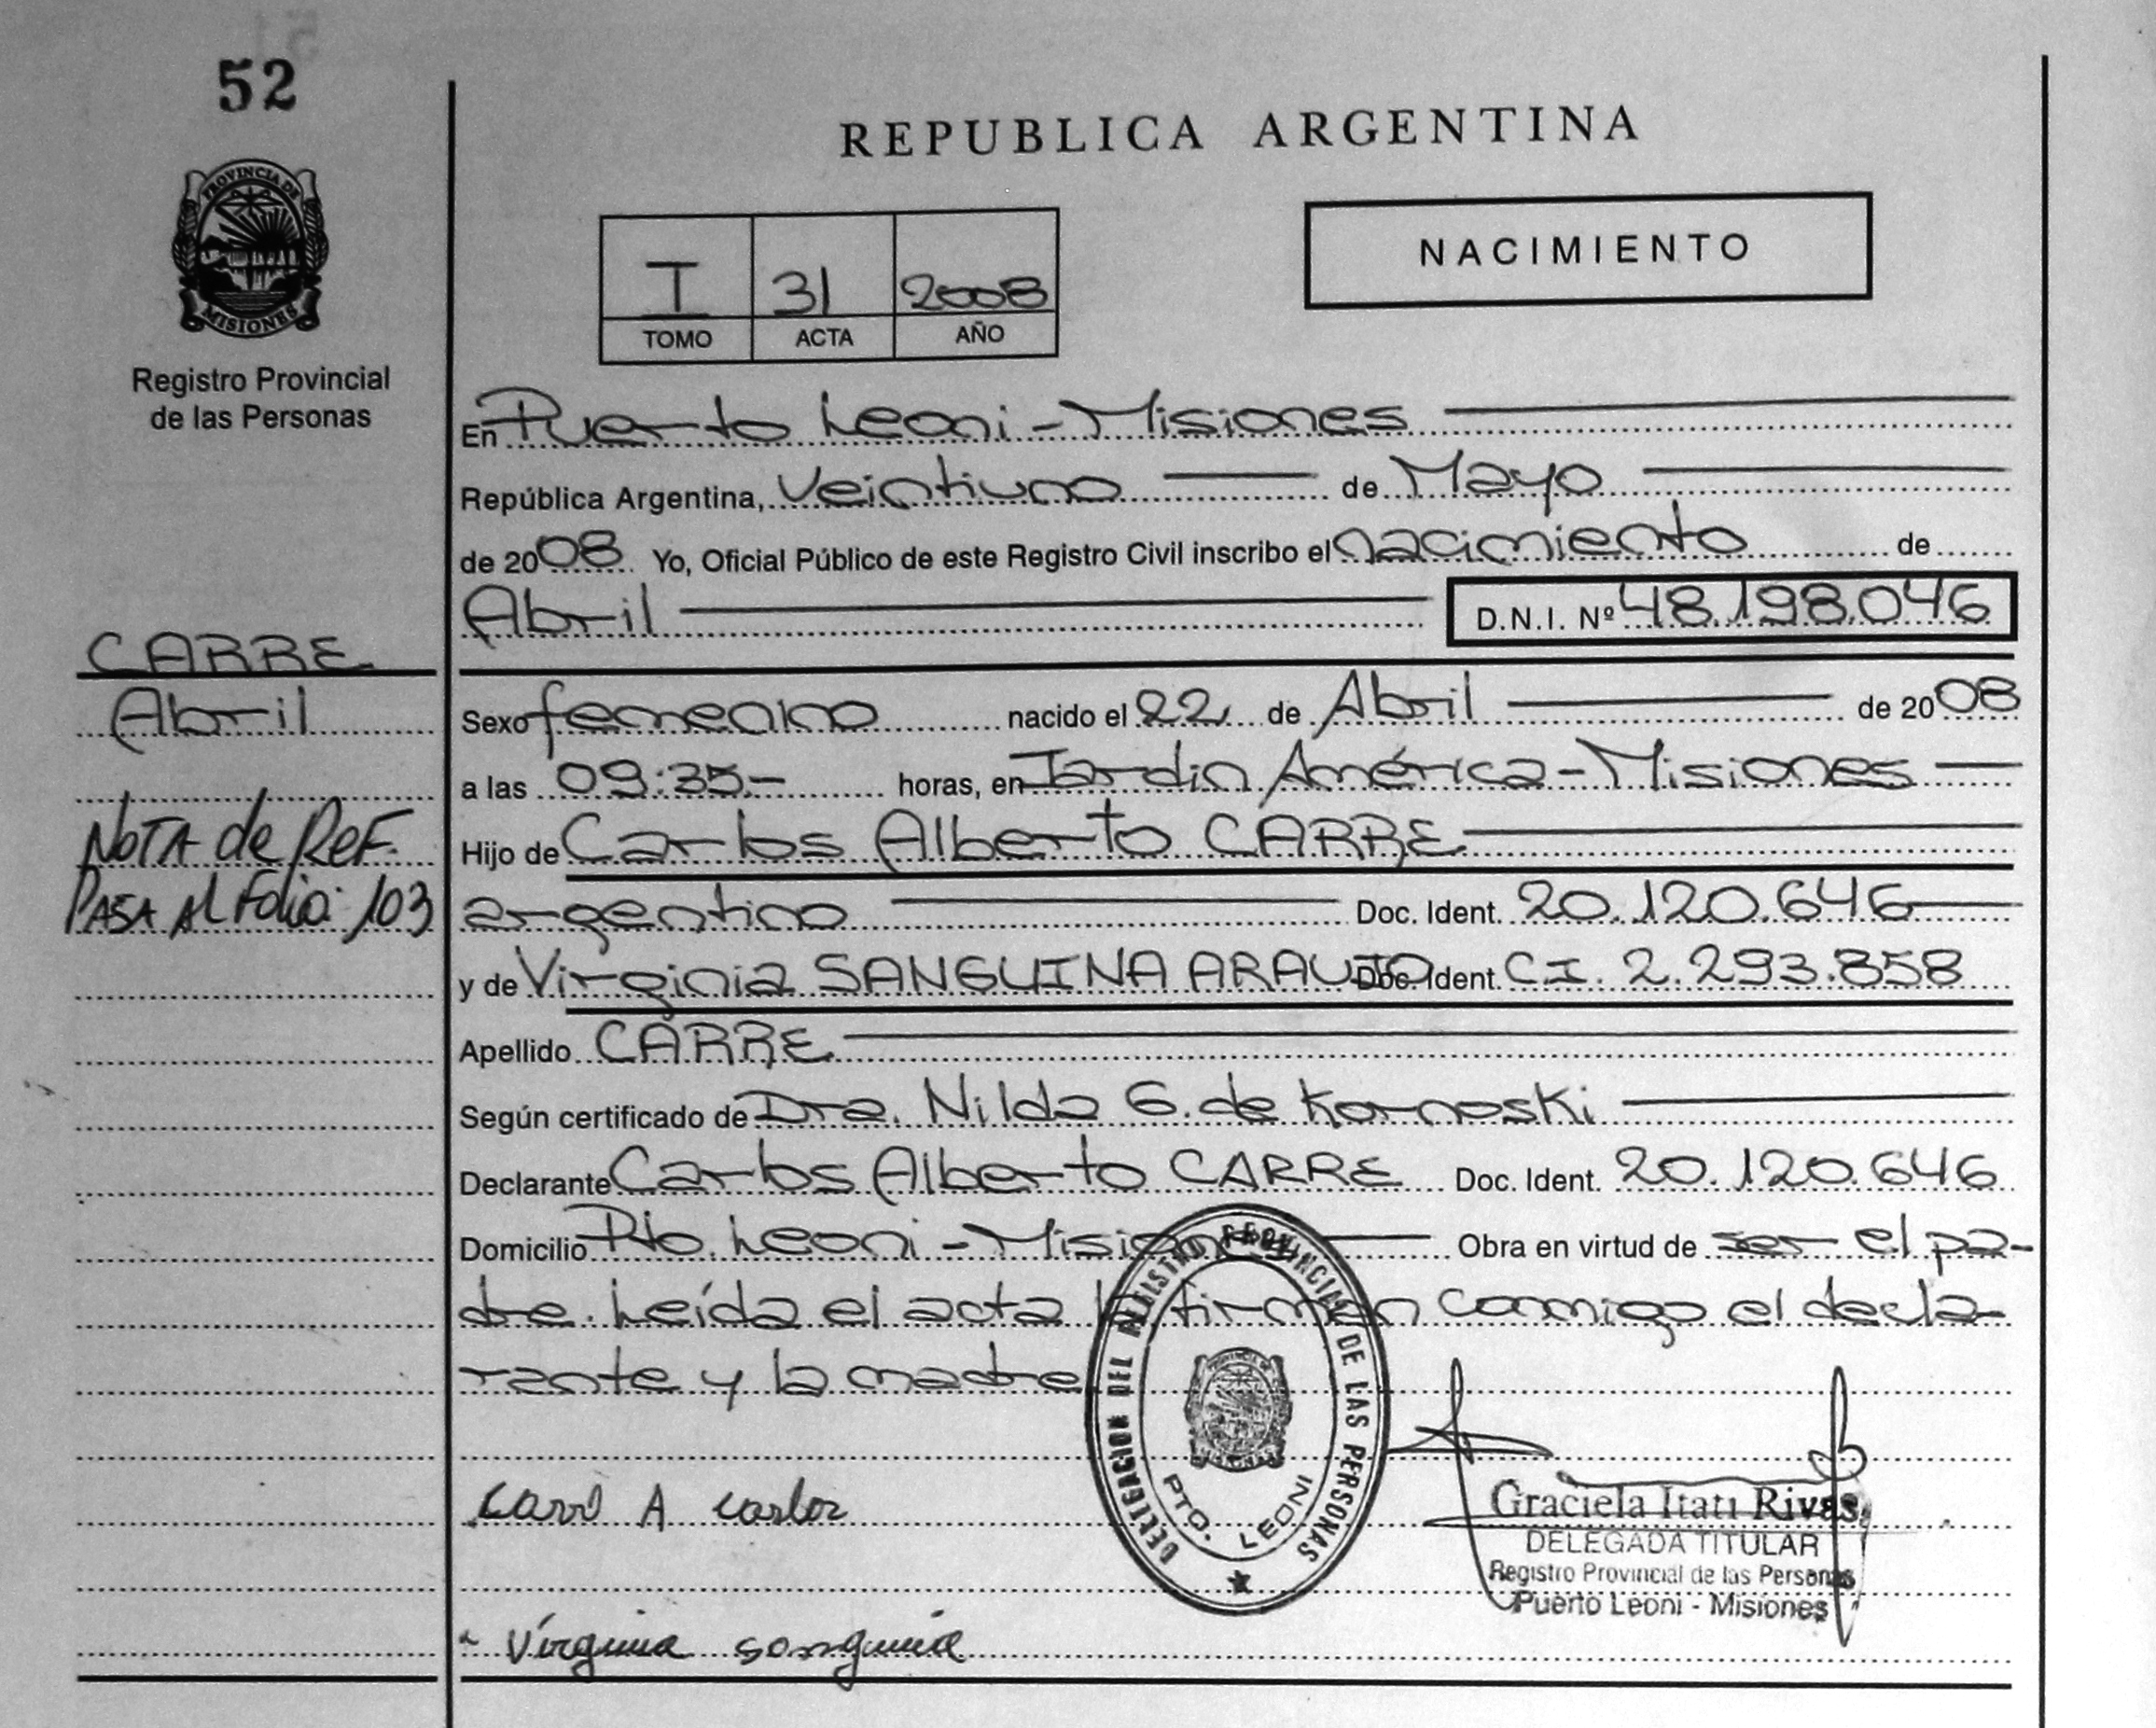 52
PROVINCIA DE
MISIONES
Registro Provincial
de las Personas
CARRE
Abril
NOTA de REF.
PASA Al Folio: 103
REPUBLICA ARGENTINA
NACIMIENTO
I 31 2008
TOMO ACTA AÑO
En Puerto Leoni - Misiones
República Argentina, Veintiuno de Mayo
de 2008 Yo, Oficial Público de este Registro Civil inscribo el nacimiento de
Abril D.N.I. Nº 48.198.046
Sexo femenino nacido el 22 de Abril de 2008
a las 09:35.- horas, en Jardín América - Misiones
Hijo de Carlos Alberto CARRE
argentino Doc. Ident. 20.120.646
y de Virginia SANGUINA ARAUJO Doc. Ident. C.I. 2.293.858
Apellido CARRE
Según certificado de Dra. Nilda G. de Kornoski
Declarante Carlos Alberto CARRE Doc. Ident. 20.120.646
Domicilio Pto. Leoni - Misiones Obra en virtud de ser el pa-
dre. Leída el acta la firman conmigo el decla-
rante y la madre
DELEGACION DEL REGISTRO PROVINCIAL DE LAS PERSONAS
PTO. LEONI
Carlos
Graciela Itati Rivas
DELEGADA TITULAR
Registro Provincial de las Personas
Puerto Leoni - Misiones
Virginia sanguina